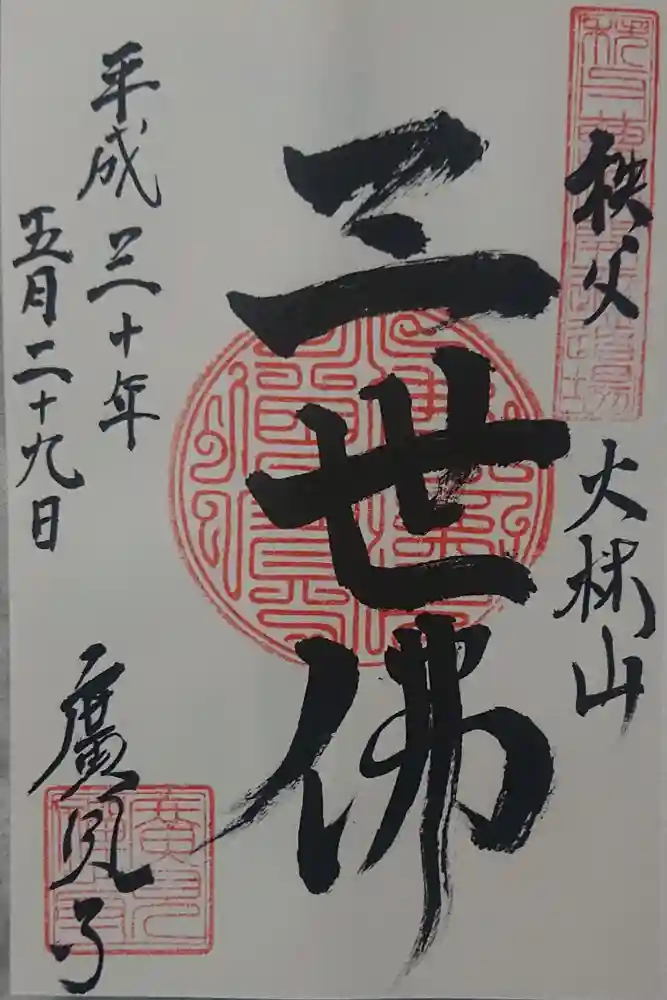 秩父 大林山
三世佛
平成三十年
五月二十九日
廣見寺